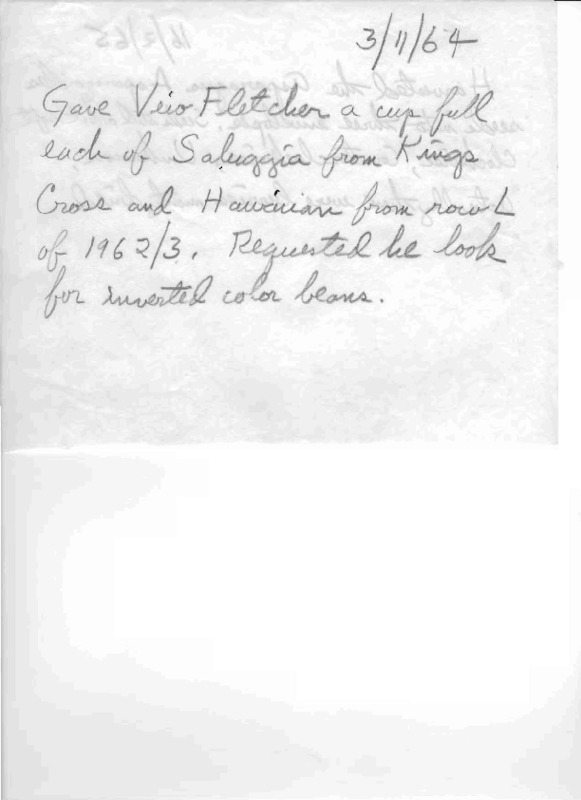 3/11/64
Gave Veio Fletcher a cup full
each of Saluggia from Kings
Cross and Hawaiian from row L
of 1962/3. Requested he look
for inverted color beans.
16/2/65